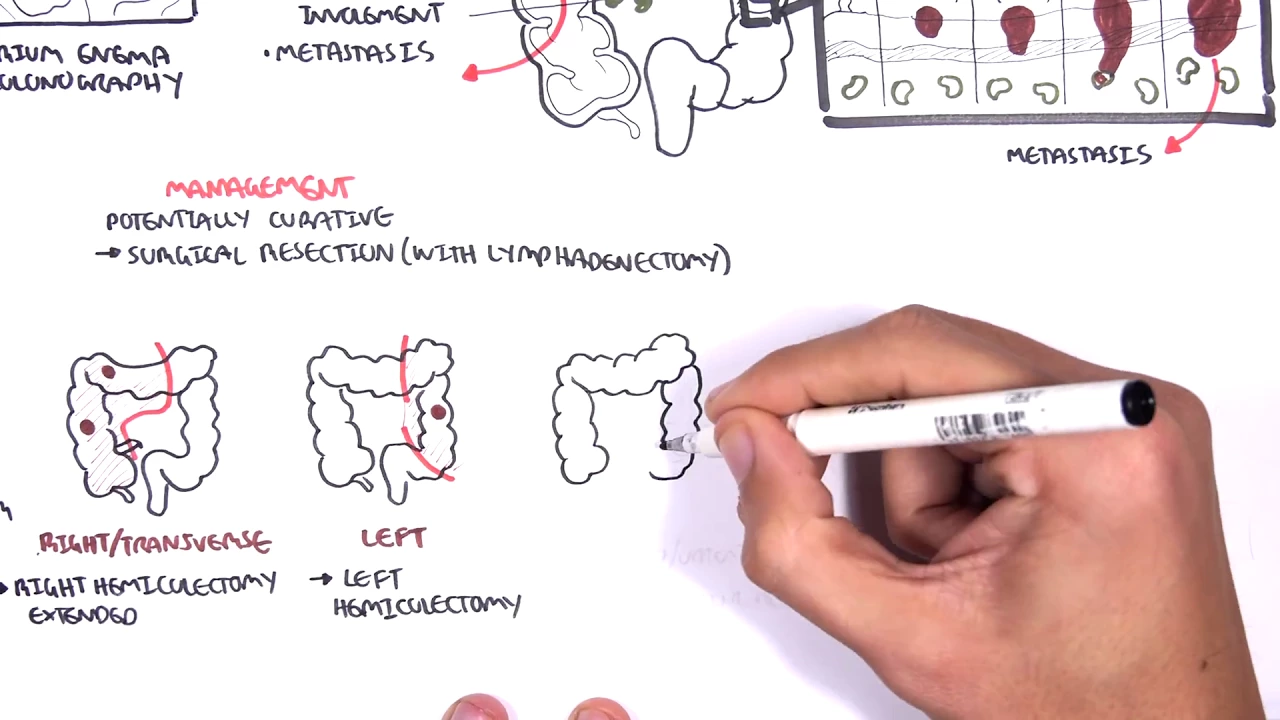 INVOLEMENT
• METASTASIS
METASTASIS
MANAGEMENT
POTENTIALLY CURATIVE
→ SURGICAL RESECTION (WITH LYMPHADENECTOMY)
RIGHT/TRANSVERSE
→ RIGHT HEMICOLECTOMY
EXTENDED
LEFT
→ LEFT
HEMICOLECTOMY